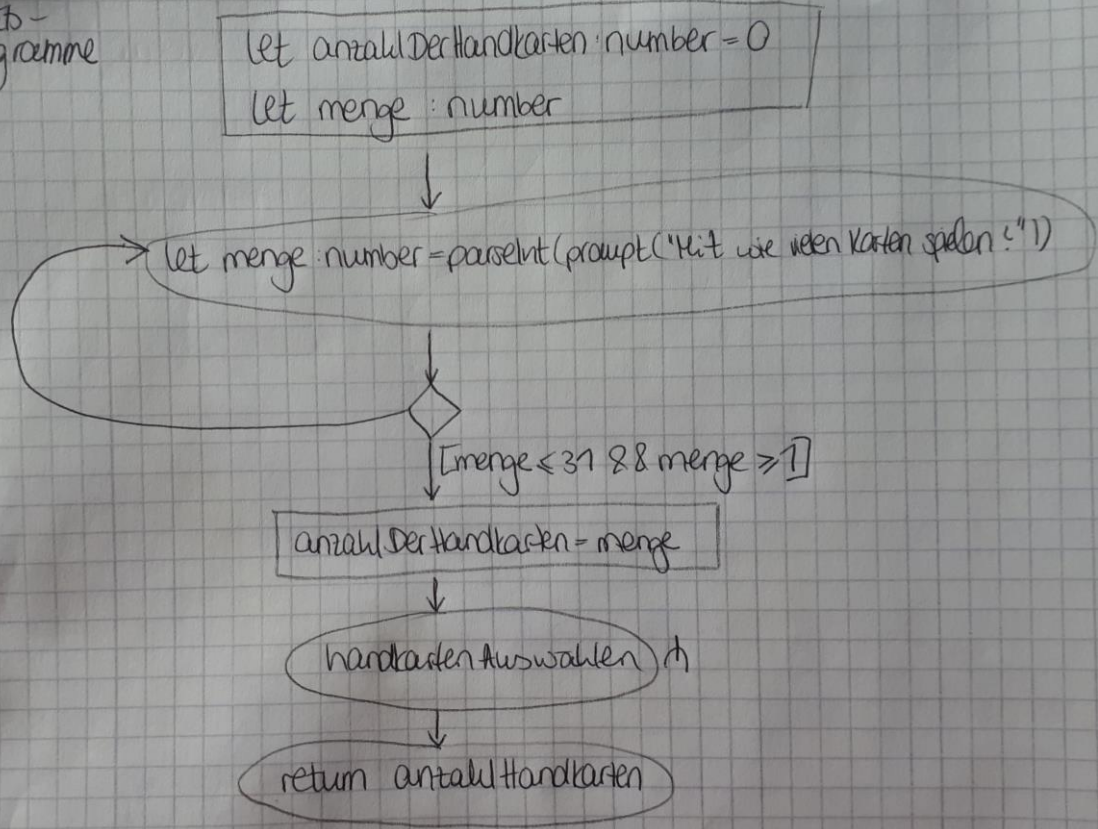 gramme
let anzahlDerHandkarten:number=0
let menge:number
let menge:number=parseInt(prompt("Mit wie vielen Karten spielen?"))
[menge≤31 && menge≥1]
anzahlDerHandkarten=menge
handkartenAuswahlen
return anzahlHandkarten